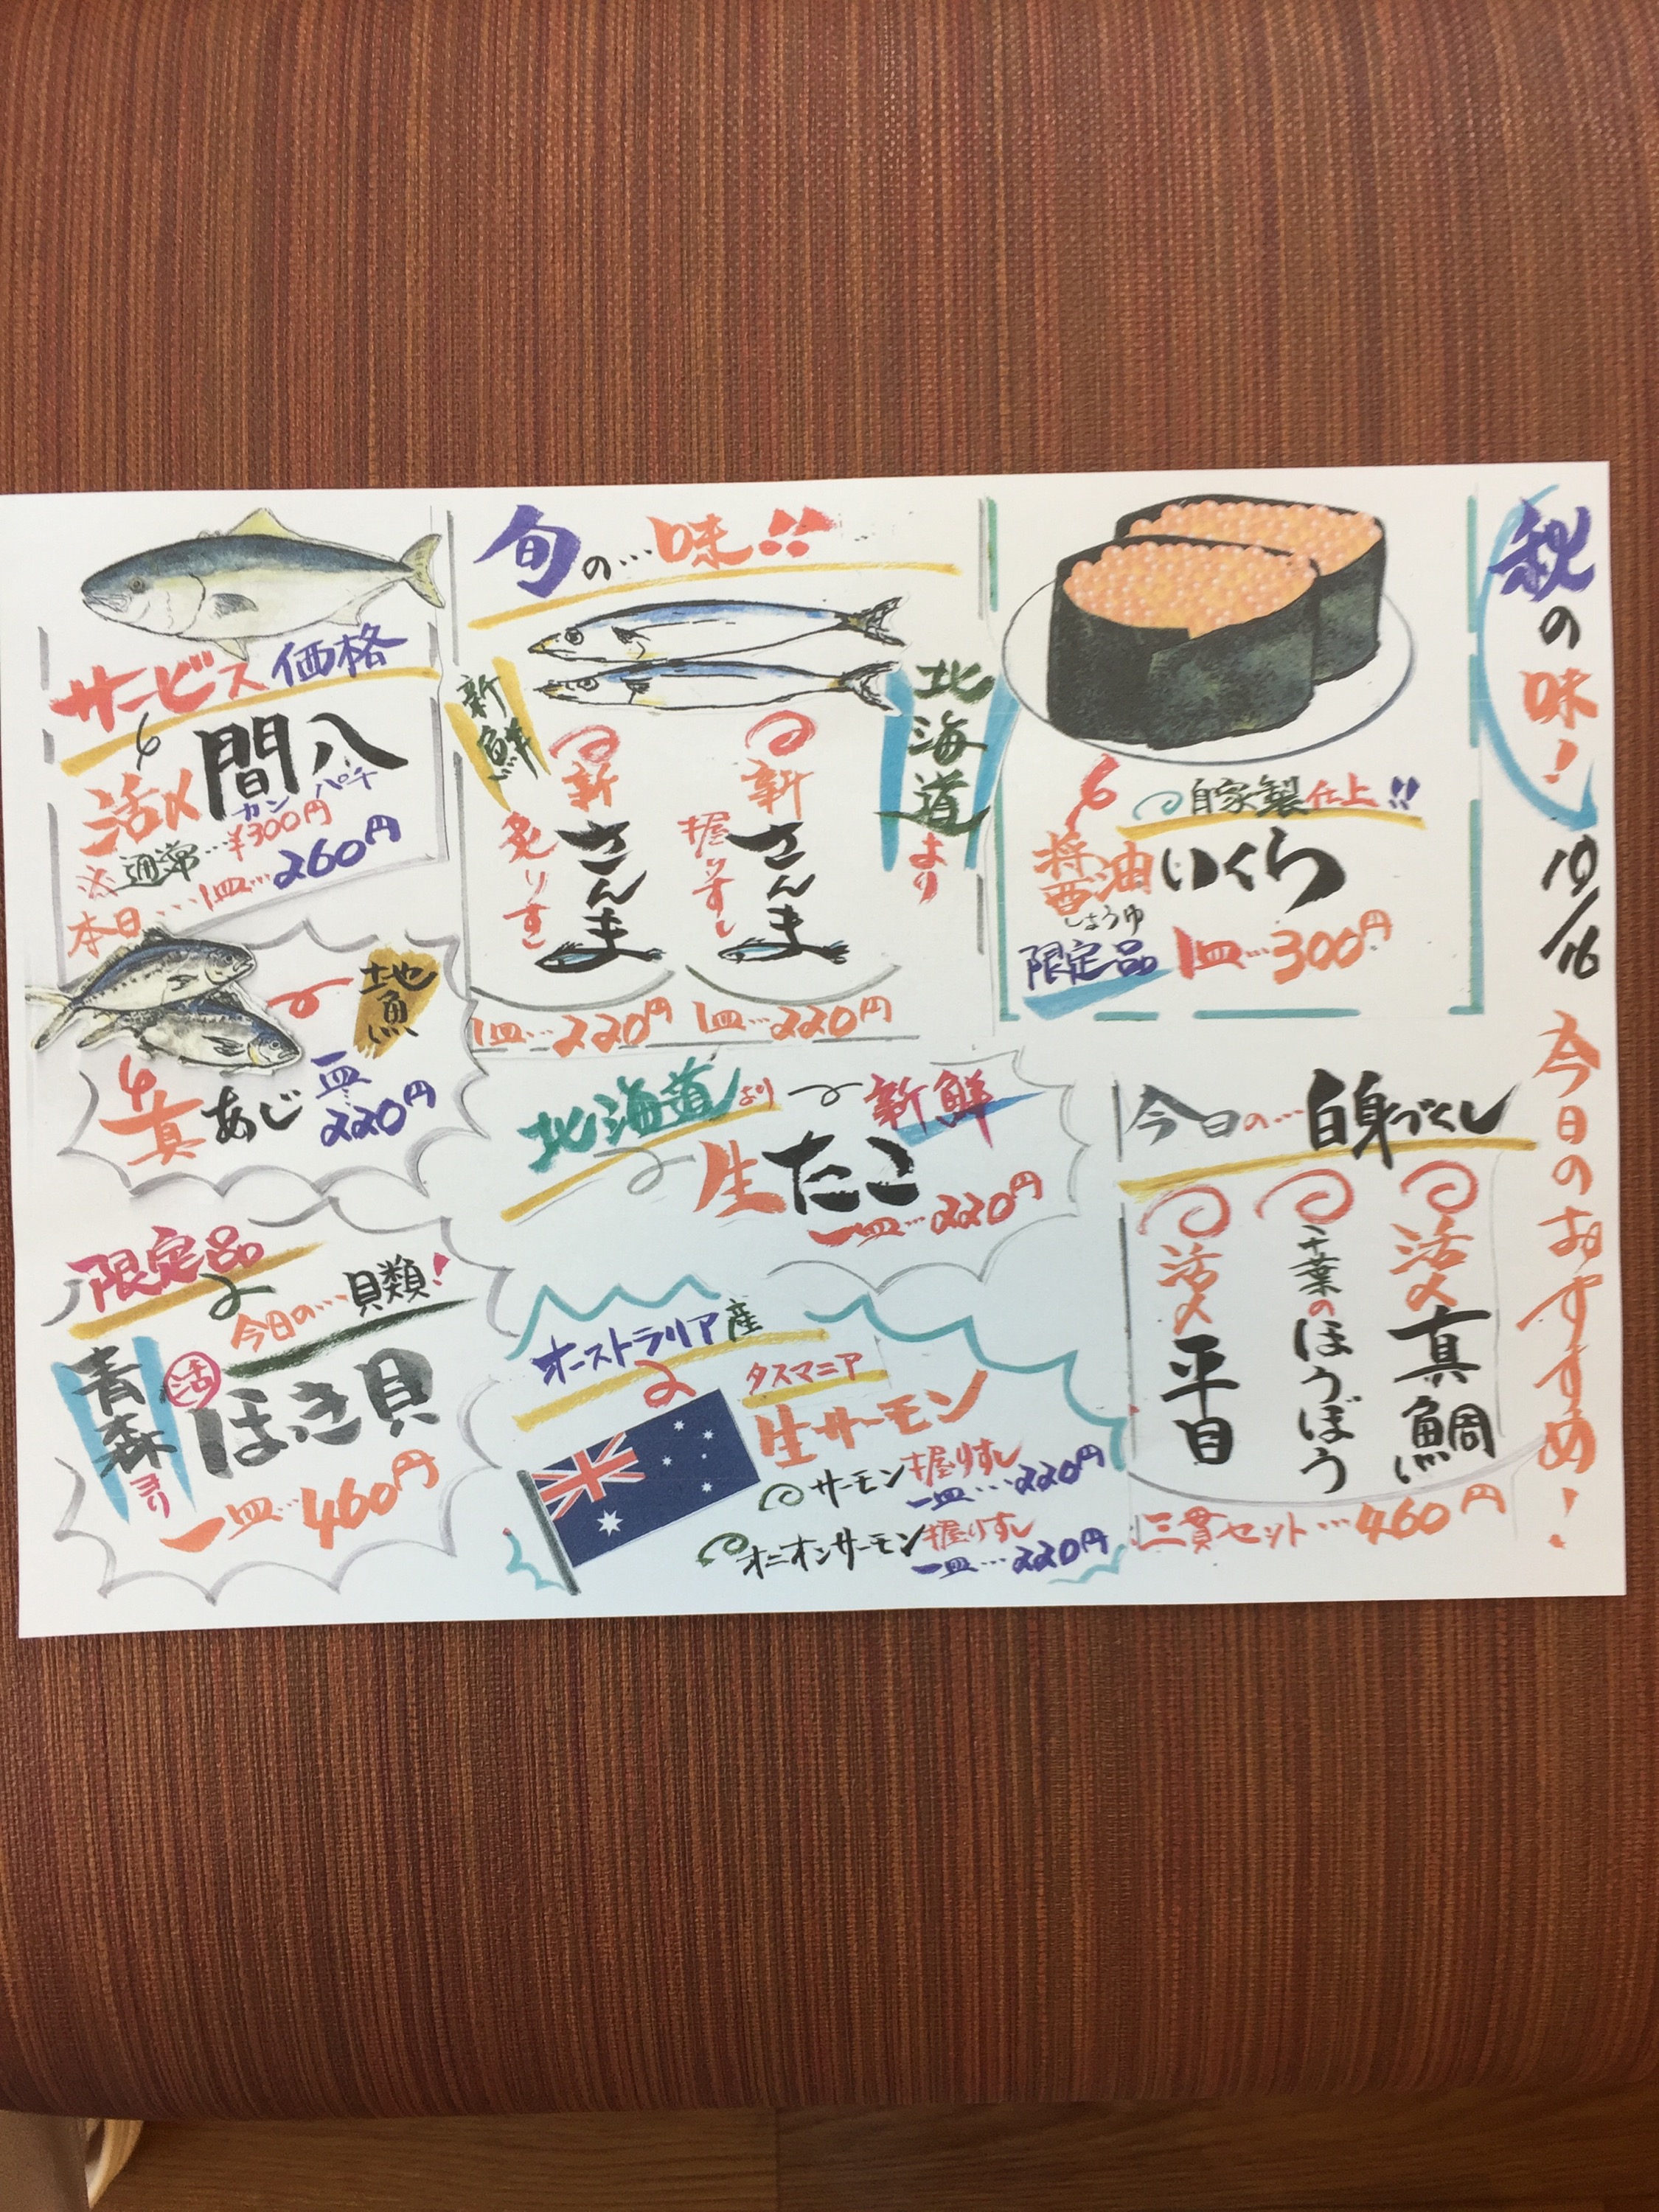 秋の味!
10/16
今日のおすすめ!
自家製仕上!!
醤油いくら
しょうゆ
限定品 1皿…300円
今日の…白身づくし
活〆真鯛
千葉のほうぼう
活〆平目
三貫セット…460円
旬の…味!!
北海道より
新鮮
新さんま
握りすし
1皿…220円
新さんま
炙りすし
1皿…220円
北海道より 新鮮
生たこ
一皿…220円
オーストラリア産
タスマニア
生サーモン
サーモン握りすし
一皿…220円
オニオンサーモン握りすし
一皿…220円
サービス価格
活〆間八
カンパチ
※通常…¥300円
本日…1皿…260円
地魚
真あじ
一皿…220円
限定品
今日の…貝類!
青森ヨリ
活ほっき貝
一皿…460円